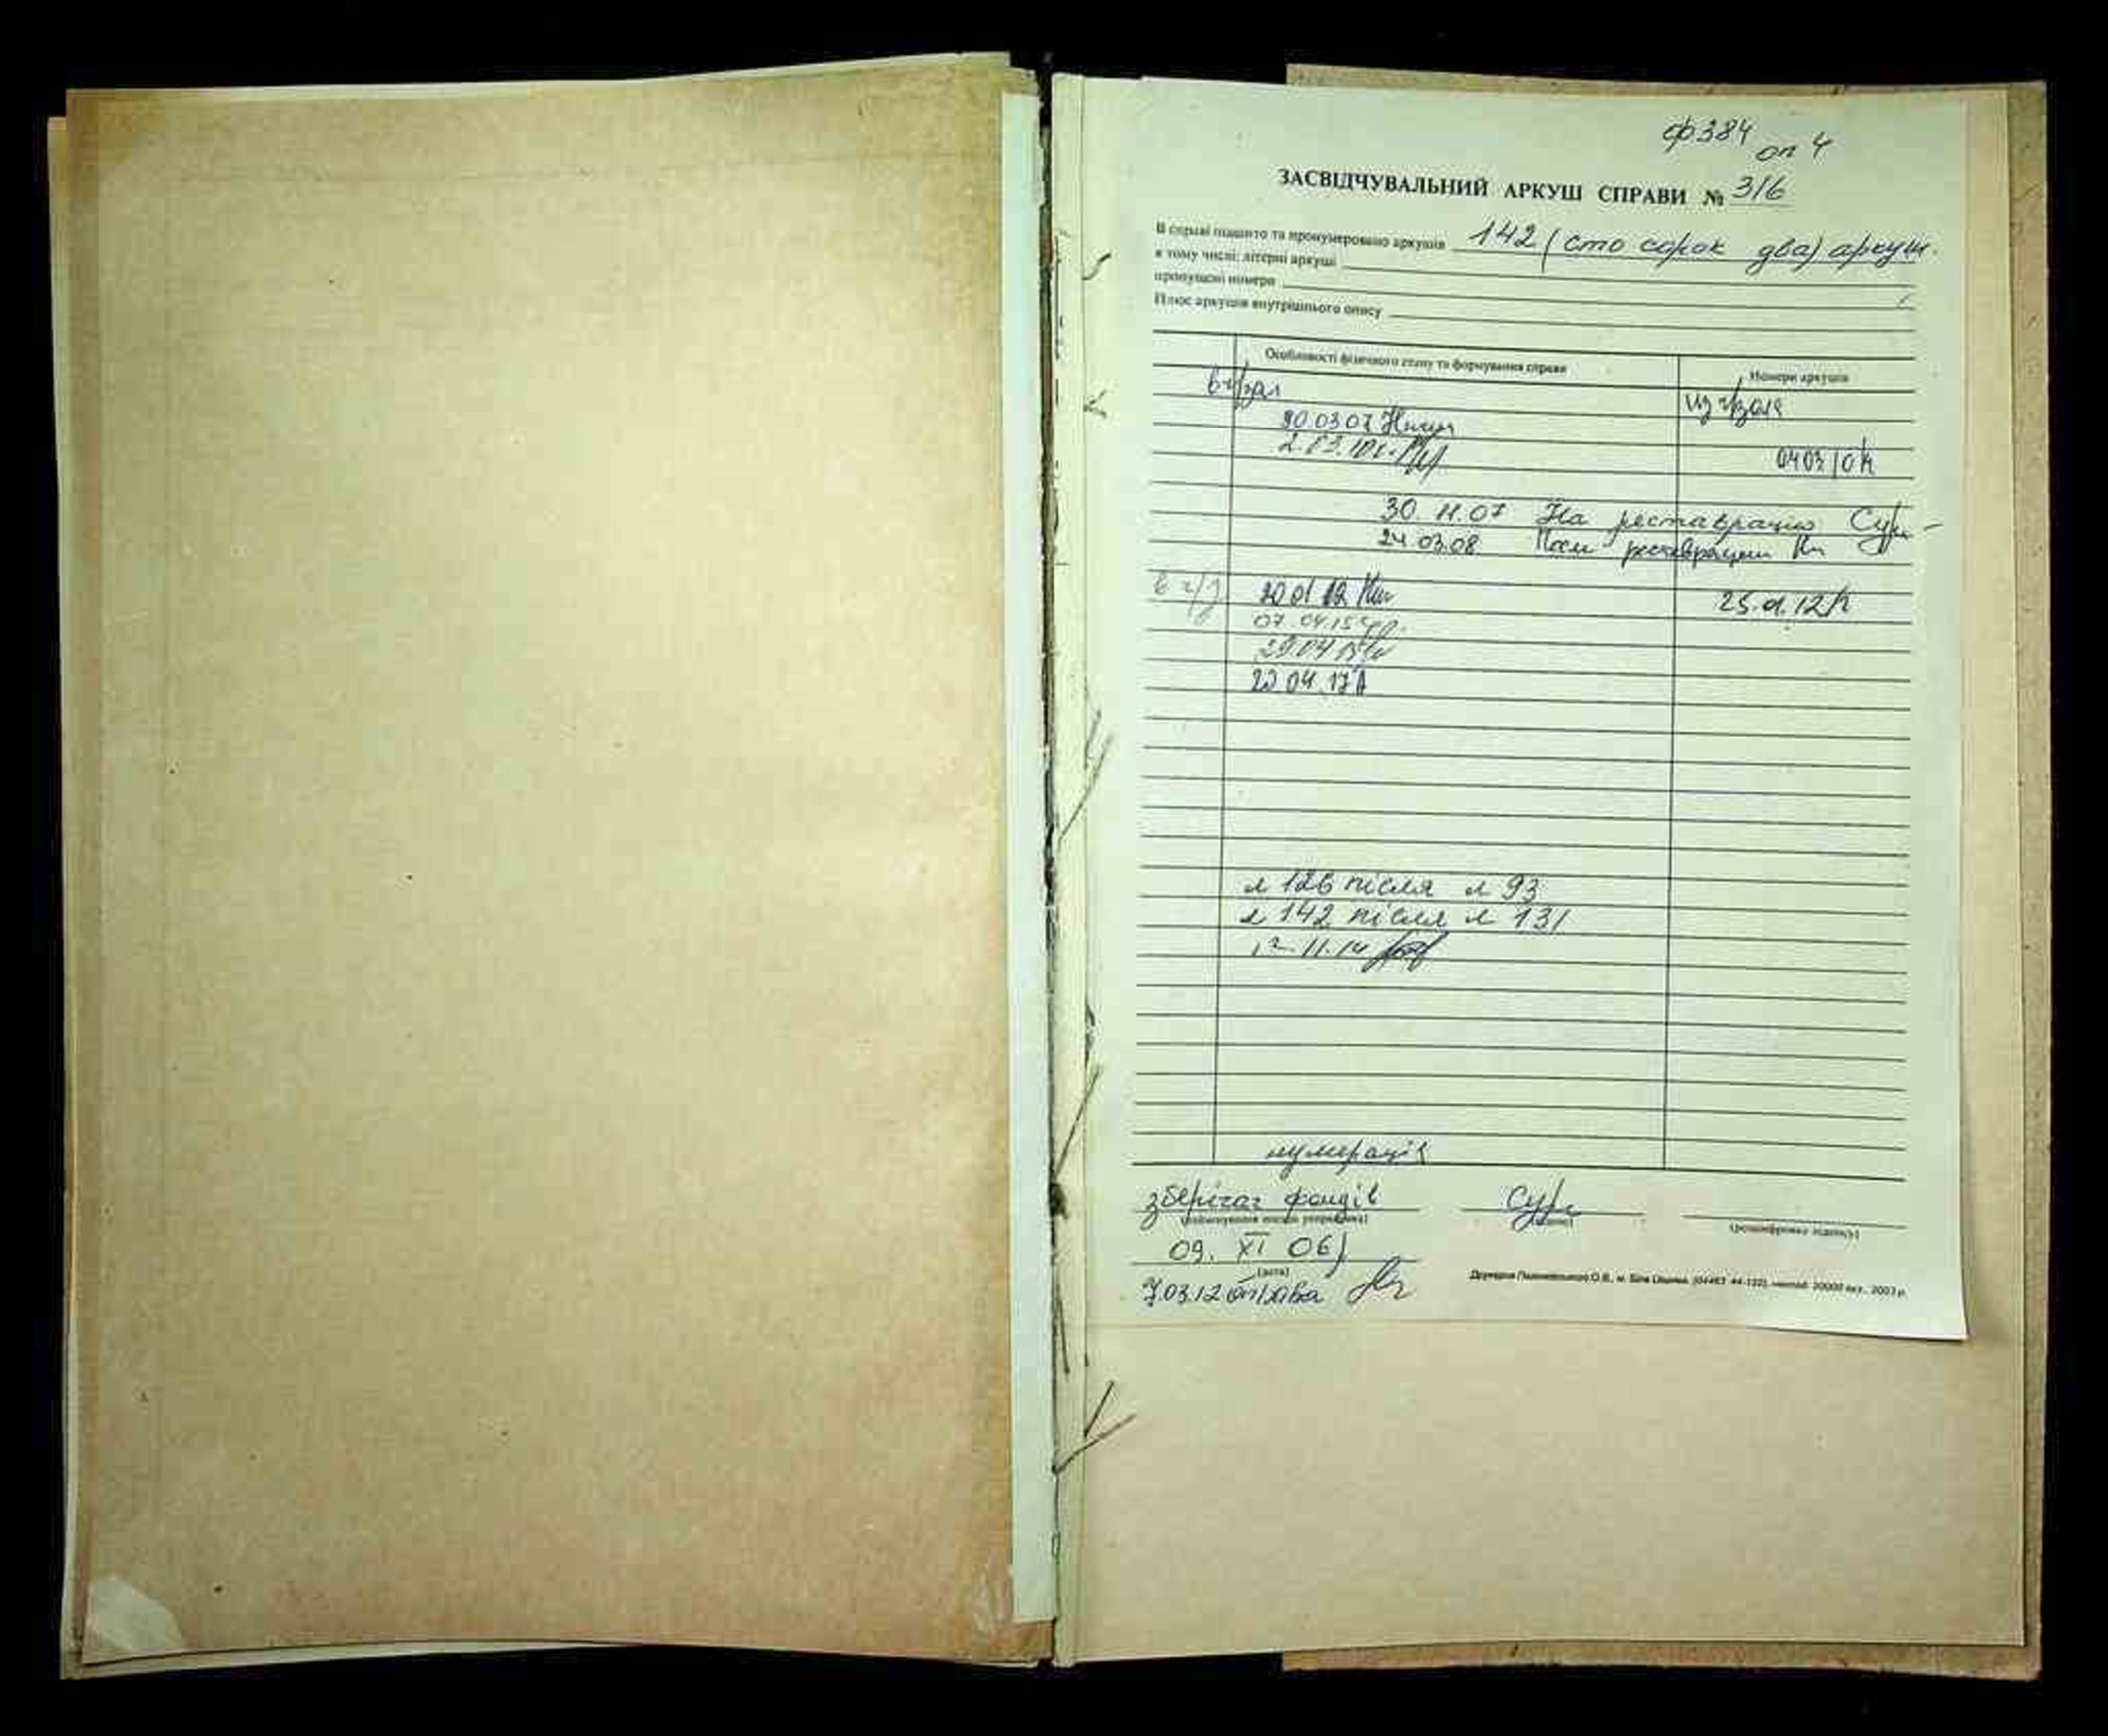 ф 384 оп 4
ЗАСВІДЧУВАЛЬНИЙ АРКУШ СПРАВИ № 316
В справі підшито та пронумеровано аркушів 142 (сто сорок два) аркуш.
в тому числі: літерні аркуші
пропущені номери
Плюс аркушів внутрішнього опису
Особливості фізичного стану та формування справи
Номери аркушів
в ч/зал
из ч/зала
30 03 07
0403 10
30. 11. 07 На реставрацию
24 03.08 После реставрации
в ч/з 20 01 12 25. 01. 12
07. 04.15
29.04 15
20 04. 17
л 126 після л 93
л 142 після л 131
11. 14
нумерація
зберігач фондів
(найменування посади укладача) (підпис) (розшифровка підпису)
09. XI 06
(дата)
7.03.12